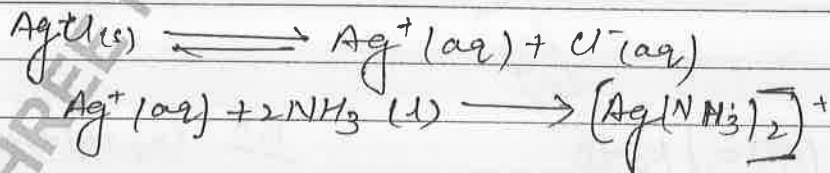 AgCl(s) ⇌ Ag⁺(aq) + Cl⁻(aq)
Ag⁺(aq) + 2NH₃(l) → [Ag(NH₃)₂]⁺
THREE